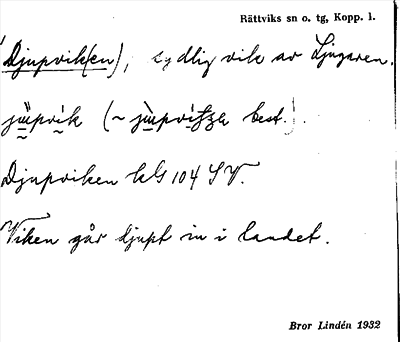 Rättviks sn o. tg, Kopp. l.
Djupvik(en), sydlig vik av Ljugaren.
best.).
Djupviken kb 104 SV.
Viken går djupt in i landet.
Bror Lindén 1932